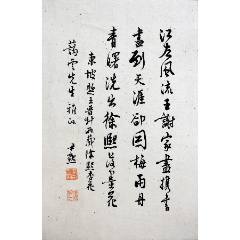 江左風流王謝家盡攜書
畫到天涯卻因梅雨丹
青暗洗出徐熙落墨花
東坡題王晉卿所藏徐熙杏花
藹雲先生雅正